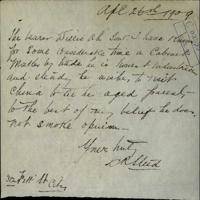 Apl 26th 1909
The bearer Willie Ah
I have known
for some considerable time a Cabinet
Maker by trade he is honest & industrious
and steady he wishes to visit
China to see his aged parents
to the best of my belief he does
not smoke opium.
Yours truly